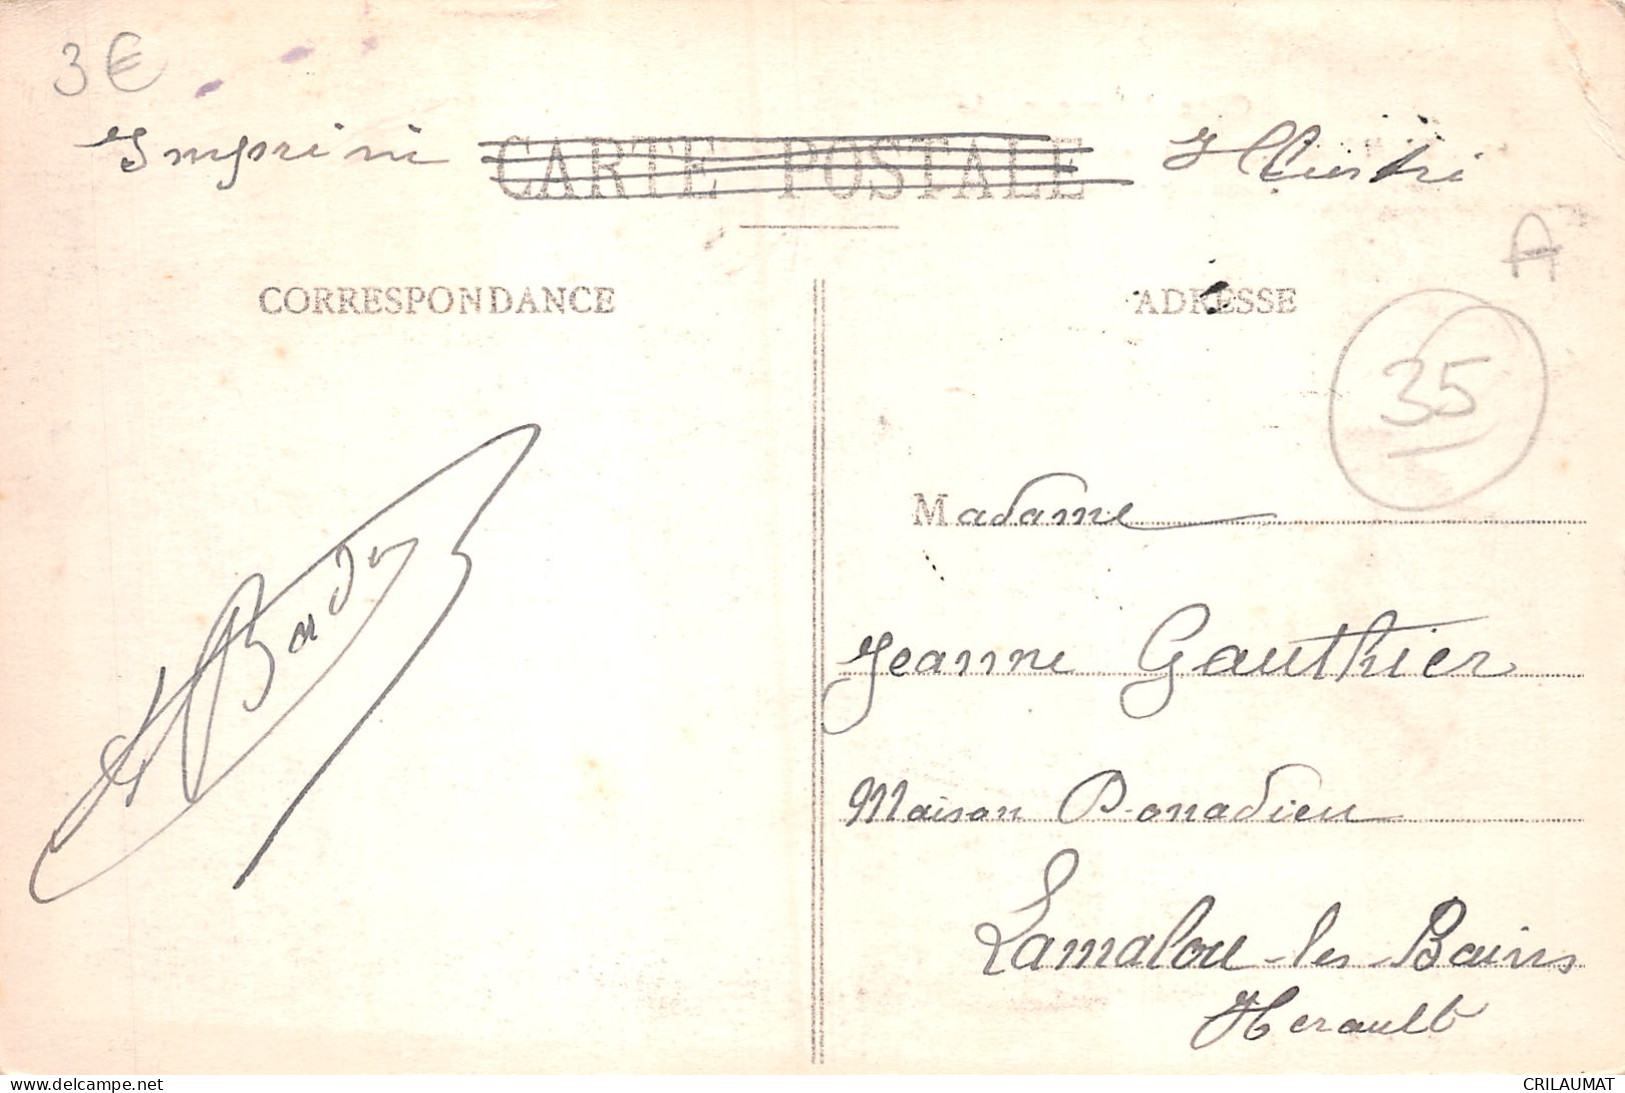 3€
Imprimé CARTE POSTALE Illustré
A
CORRESPONDANCE
ADRESSE
35
Madame
Jeanne Gauthier
Maison Donadieu
Lamalou-les-Bains
Herault
www.delcampe.net
CRILAUMAT